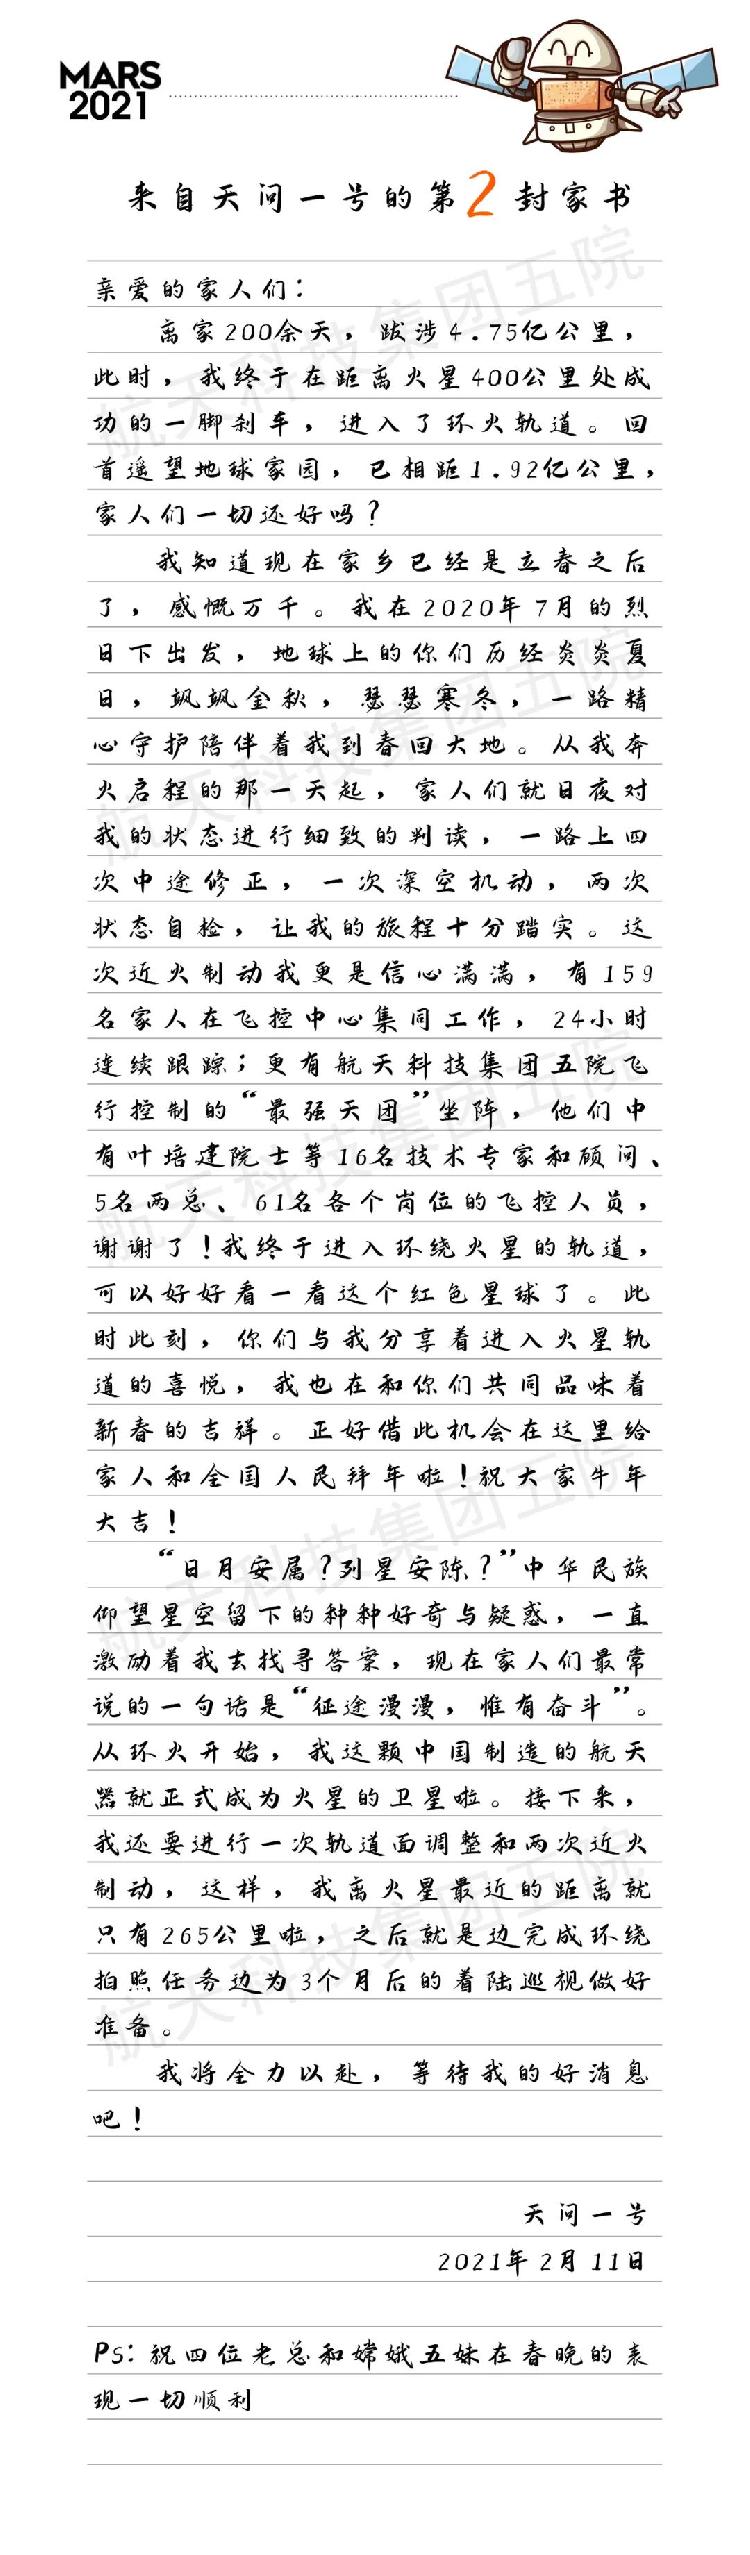 MARS
2021
来自天问一号的第2封家书
亲爱的家人们：
离家200余天，跋涉4.75亿公里，
此时，我终于在距离火星400公里处成
功的一脚刹车，进入了环火轨道。回
首遥望地球家园，已相距1.92亿公里，
家人们一切还好吗？
我知道现在家乡已经是立春之后
了，感慨万千。我在2020年7月的烈
日下出发，地球上的你们历经炎炎夏
日，飒飒金秋，瑟瑟寒冬，一路精
心守护陪伴着我到春回大地。从我奔
火启程的那一天起，家人们就日夜对
我的状态进行细致的判读，一路上四
次中途修正，一次深空机动，两次
状态自检，让我的旅程十分踏实。这
次近火制动我更是信心满满，有159
名家人在飞控中心集同工作，24小时
连续跟踪；更有航天科技集团五院飞
行控制的“最强天团”坐阵，他们中
有叶培建院士等16名技术专家和顾问、
5名两总、61名各个岗位的飞控人员，
谢谢了！我终于进入环绕火星的轨道，
可以好好看一看这个红色星球了。此
时此刻，你们与我分享着进入火星轨
道的喜悦，我也在和你们共同品味着
新春的吉祥。正好借此机会在这里给
家人和全国人民拜年啦！祝大家牛年
大吉！
“日月安属？列星安陈？”中华民族
仰望星空留下的种种好奇与疑惑，一直
激励着我去找寻答案，现在家人们最常
说的一句话是“征途漫漫，惟有奋斗”。
从环火开始，我这颗中国制造的航天
器就正式成为火星的卫星啦。接下来，
我还要进行一次轨道面调整和两次近火
制动，这样，我离火星最近的距离就
只有265公里啦，之后就是边完成环绕
拍照任务边为3个月后的着陆巡视做好
准备。
我将全力以赴，等待我的好消息
吧！
天问一号
2021年2月11日
PS：祝四位老总和嫦娥五妹在春晚的表
现一切顺利
航天科技集团五院
航天科技集团五院
航天科技集团五院
航天科技集团五院
航天科技集团五院